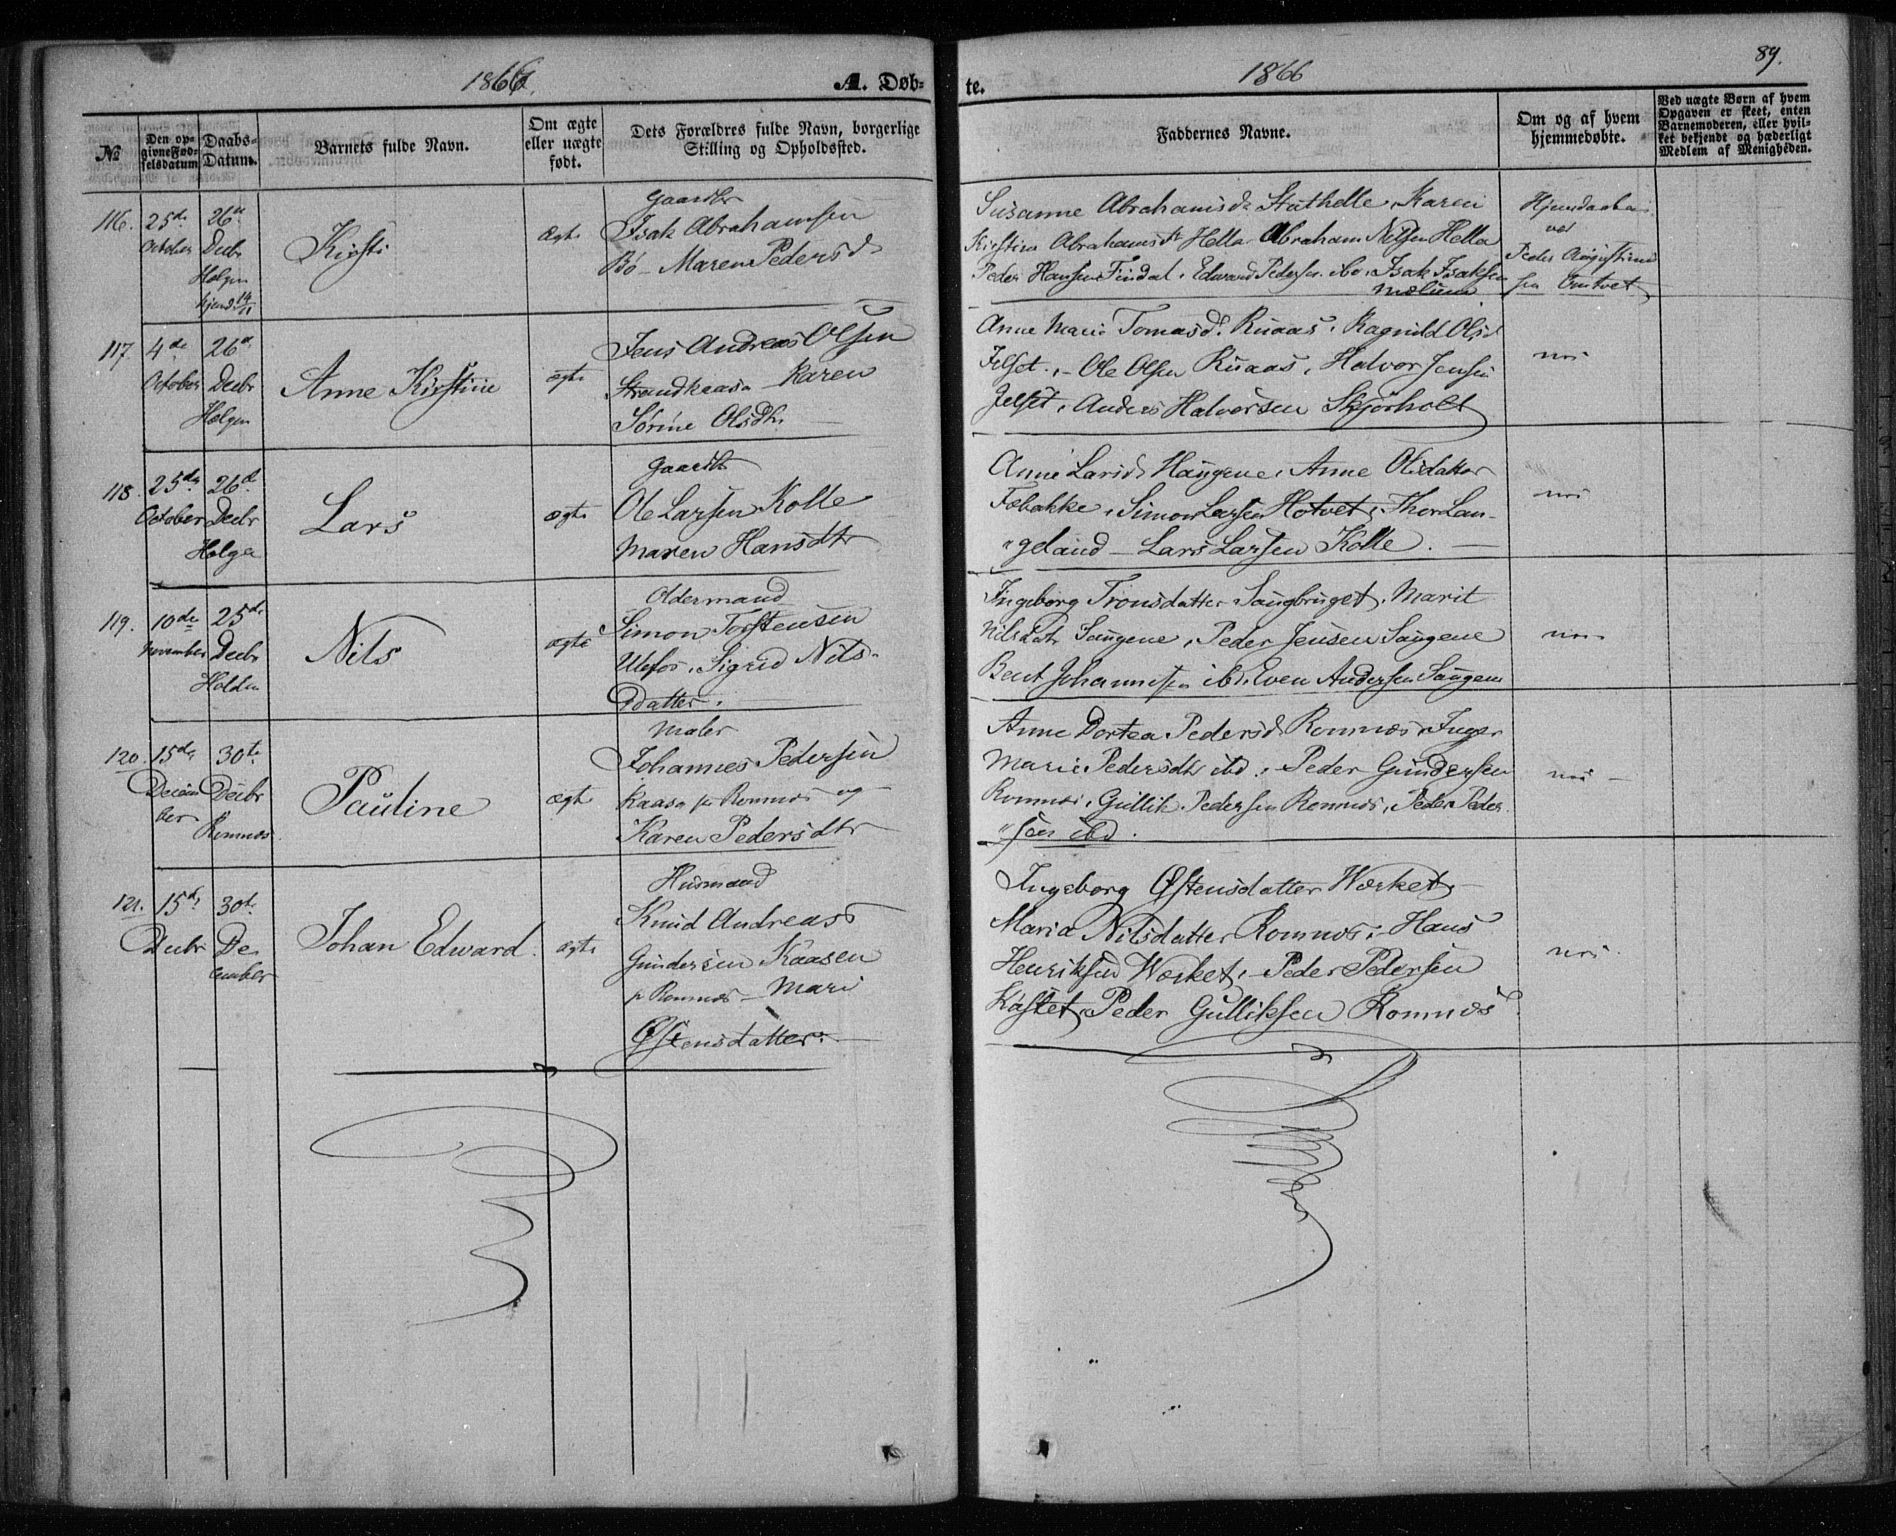 1866.
A. Døb-
№
Den op-
givne Fød-
selsdatum
Daabs-
Datum.
Barnets fulde Navn.
Om ægte
eller uægte
født.
Dets Forældres fulde Navn, borgerlige
Stilling og Opholdssted.
116.
25de
October
26de
Decbr
Holgen
hjemd 14/11
Kirsti
Ægte
Gaardbr
Isak Abrahamsen
Bø - Maren Pedersd
117.
4de
October
26de
Decbr
Holgen
Anne Kirstine
ægte
Jens Andreas Olsen
Strandkaasa - Karen
Sørine Olsdtr
118.
25de
October
26de
Decbr
Holgen
Lars
ægte
Gaardbr
Ole Larsen Kolle
Maren Hansdtr
119.
10de
November
25de
Decbr
Holden
Nils
ægte
Oldermand
Simon Torstensen
Ulefos, Sigrid Nils-
Datter.
120.
15de
Decem
ber
30te
Decbr
Romnæs
Pauline
ægte
Maler
Johannes Pedersen
Kaasa p Romnæs og
Karen Pedersdtr
121.
15de
Decbr
30te
De-
cember
Johan Edward.
ægte
Husmand
Knud Andreas
Gundersen Kaasen
p Romnæs - Mari
Østensdatter.
te.
1866
89.
Faddernes Navne.
Om og af hvem
hjemmedøbte.
Ved uægte Børn af hvem
Opgaven er skeet, enten
Barnemoderen, eller hvil-
ket bekjendt og hæderligt
Medlem af Menigheden.
Susanne Abrahamsd Stathelle, Karen
Kirstine Abrahamsdt Hella, Abraham Nilsen Hella
Peder Hansen Findal, Edward Pedersen ibd, Isak Isaksen
Mælum
Hjemdøbt
ved
Peder Augustinus
fra Omtvet
Anne Marie Tomasd. Ruaas, Ragnild Olsd
Jelset, - Ole Olsen Ruaas, Halvor Jensen
Jelset, Anders Halvorsen Skjørholt
nei
Anne Larsd Haugene, Anne Olsdatter
Fæbakke, Simon Larsen Hotvet, Thor Lan-
"geland - Lars Larsen Kolle.
nei
Ingeborg Tronsdatter Saugbruget, Marit
Nilsdatt Saugene, Peder Jensen Saugene
Bent Johannesen ibd, Even Andersen Saugene
nei
Anne Dortea Pedersd Romnæs, Inger
Marie Pedersdtr ibd, Peder Gundersen
Romnæs, Gullik Pedersen Romnæs, Peder Peder-
"sen ibd.
nei
Ingeborg Østensdatter Værket,
Maria Nilsdatter Romnæs, Hans
Henriksen Værket, Peder Pedersen
Kastet, Peder Gulliksen Romnæs
nei